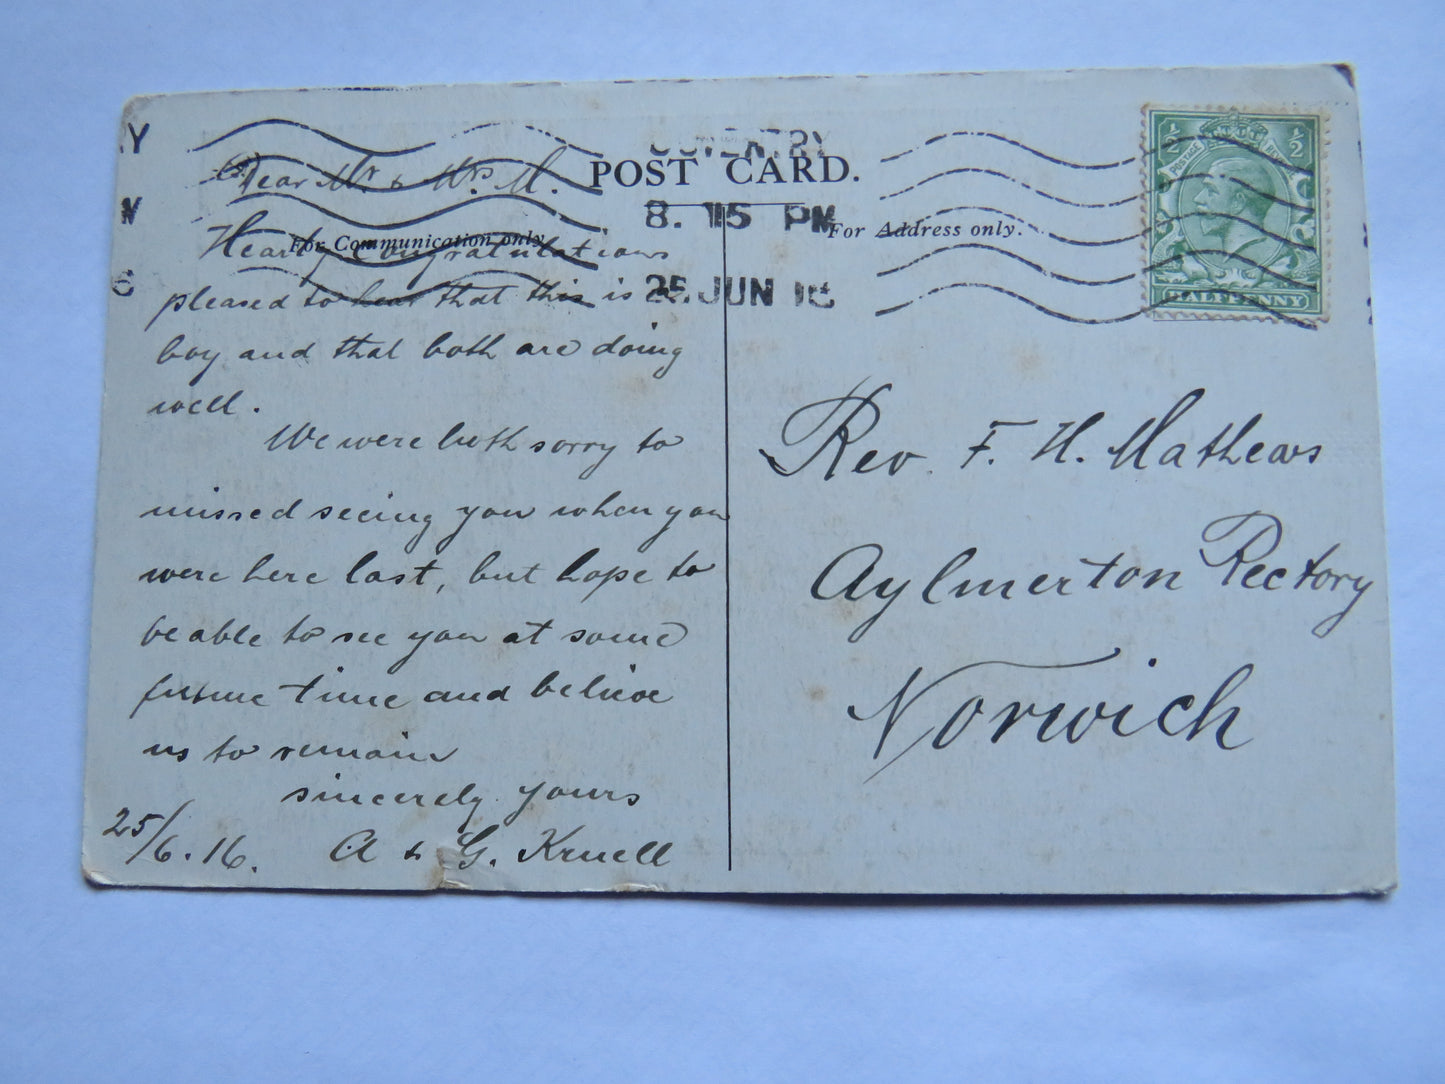 COVENTRY
8. 15 PM
25 JUN 16
POST CARD.
For Communication only.
For Address only.
½ ½
POSTAGE REVENUE
HALFPENNY
Dear Mr & Mrs M.
Hearty Congratulations
pleased to hear that this is a
boy and that both are doing
well.
We were both sorry to
missed seeing you when you
were here last, but hope to
be able to see you at some
future time and believe
us to remain
sincerely yours
25/6.16. A & G. Kruell
Rev. F. H. Mathews
Aylmerton Rectory
Norwich